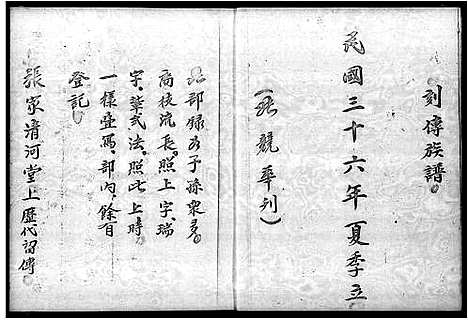 刻傳族譜
民國三十六年夏季立
競華列）
部録為子孫衆多
高枝流長。照上字、瑞
字、華式法。照此上時
一樣叠寫、部內、餘百
登記
張家清河堂上歷代留傳